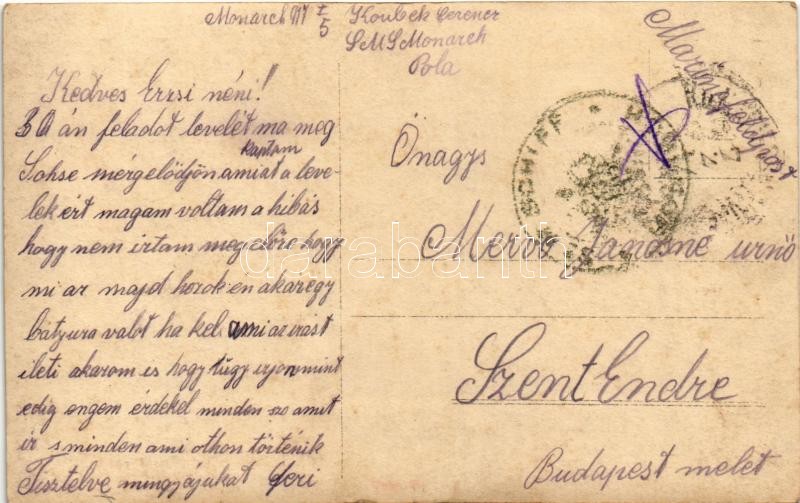 Monarch 917 I/5
Koubek Ferencz
SMS Monarch
Pola
Marinefeldpost
Kedves Erzsi néni!
30 án feladot levelét ma meg
kaptam
Sohse mérgelödjön amiat a leve-
lekért magam voltam a hibás
hogy nem irtam meg előre hogy
mi az majd hozok én akár egy
bátyura valot ha kel ami az irást
illeti akarom is hogy úgy irjon mint
edig engem érdekel minden szo amit
ir s minden ami othon történik
Tisztelve mingyájukat Feri
Önagys
Mervó Janosné urnö
Szent Endre
Budapest melet
SCHIFF
darabanth